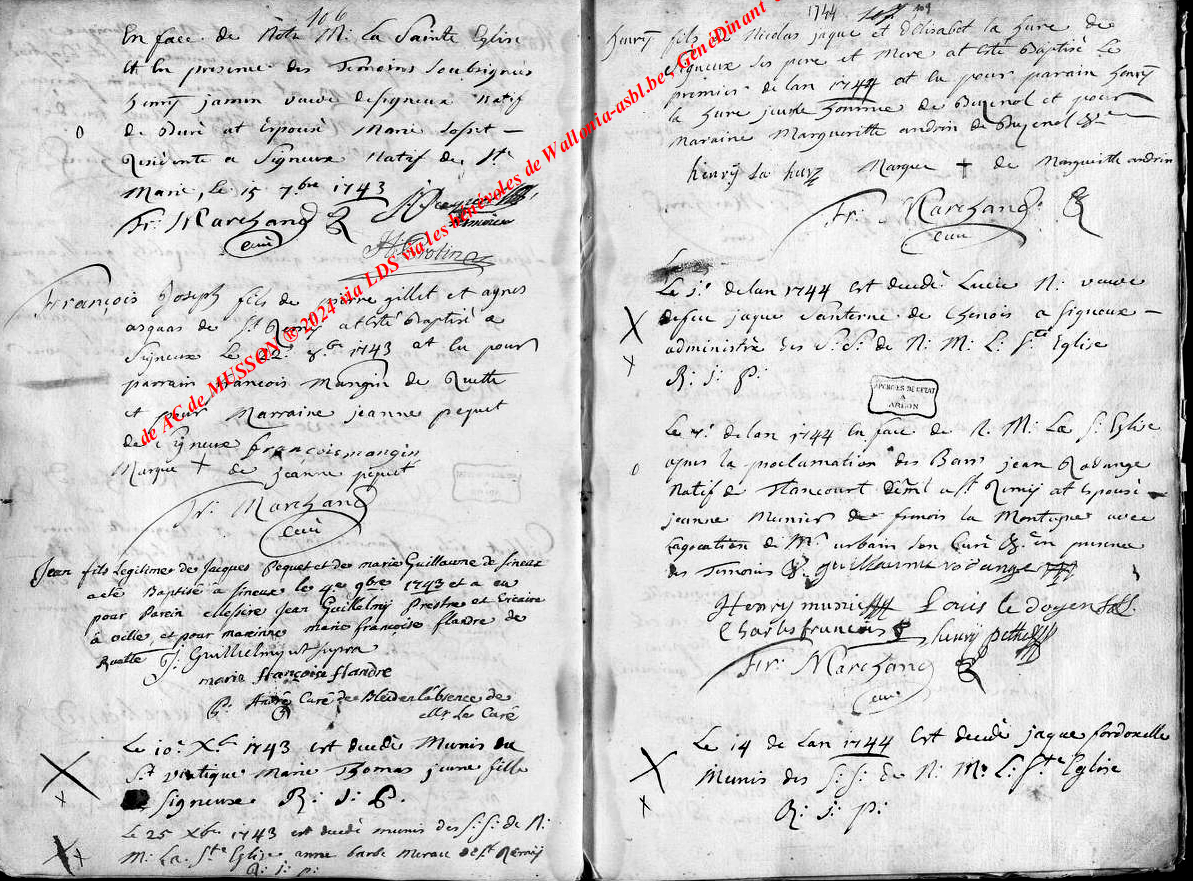 106
En face de Notre M: La Sainte Eglise
Et En presence des Temoins soubsignés
henrij jamin vauve designeux Natif
de Buré at Epousé Marie Losset
Residente a Signeux Natif de Ste
Marie, Le 15 7bre 1743
Fr: Marchand
Curé
François Joseph fils de pierre gillet et agnes
de St Remij at Esté Baptisé a
Signeux Le 22: 8bre 1743 at Eu pour
parrain francois Mangin de Ruette
et pour Marraine jeanne pequet
de Signeux françois mangin
Marque + de jeanne pequet
Fr: Marchand
Curé
Jean fils Legitime de Jacques Pequet et de marie Guillaume de sineux
a eté Baptisé a sineux le 4e 9bre 1743 et a eu
pour Parein Jean Guillelmij Prestre et Vicaire
à ville, et pour mareinne marie françoise flandre de
Ruette J: Guillielmij ut supra
marie françoise flandre
Curé de Bleid en l'absence de
Mr Le Curé
Le 10: Xbre 1743 est decedè Munis du
St viatique Marie Thomas jeune fille
Signeux R: J: P:
Le 25 Xbre 1743 est decedè munis des S: S: de N:
M: La Ste Eglise anne barbe de St Remij
R: J: P:
1744 107 109
henrij fils de Nicolas jaque et Elisabet la hure de
Signeux ses pere et Mere at Esté Baptisé Le
premier de Lan 1744 at Eu pour parain henrij
la hure jeune homme de Buzenol et pour
Maraine Margueritte andrin de Buzenol
henrij La hure Marque + de Margueritte andrin
Fr: Marchand:
Curé
Le de lan 1744 est decedè Lucie N: veuve
defeu jaque Santerne de Chenois a Signeux
administrée des S: S: de N: M: L: Ste Eglise
R: J: P:
ARCHIVES DE L'ETAT
A
ARLON
Le de lan 1744 En face de N: M: La S: Eglise
apres la proclamation des Bans jean Rodange
Natif de Hancourt a St Remij at Epousé
jeanne Munier de frenois la Montagne avec
de Mr urbain son Curé En presence
des Temoins guillaume rodange
Henry munier Louis le doyen
Charles francois henrij
Fr: Marchand
Curé
Le 14 de Lan 1744 est decedè jaque
Munis des S: S: de N: M: L: Ste Eglise
R: J: P:
de AC de MUSSON ® 2024 via LDS via les bénévoles de Wallonia-asbl.be, GénéDinant